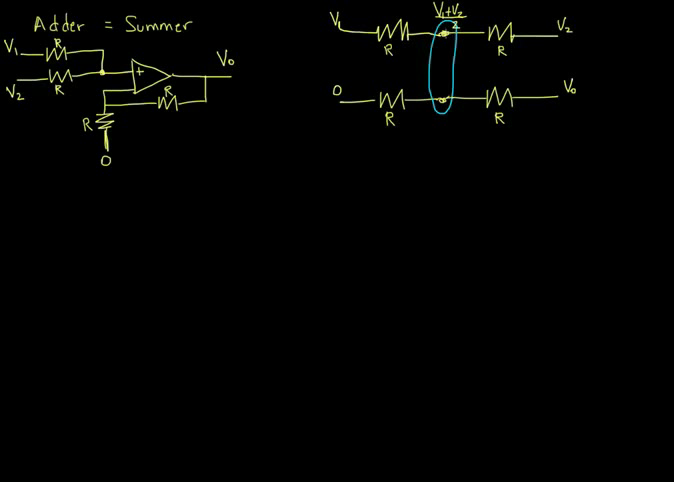 Adder = Summer
V₁ R
V₂ R
+
R
V₀
R
0
V₁ R
V₁+V₂
2
R V₂
0 R
R V₀